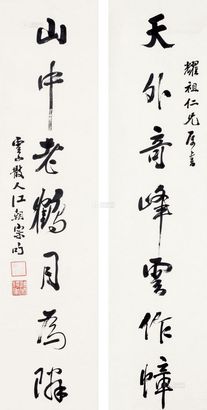 耀祖仁兄属書
天外奇峰雲作幛
山中老鶴月為隣
雲山散人江朝宗